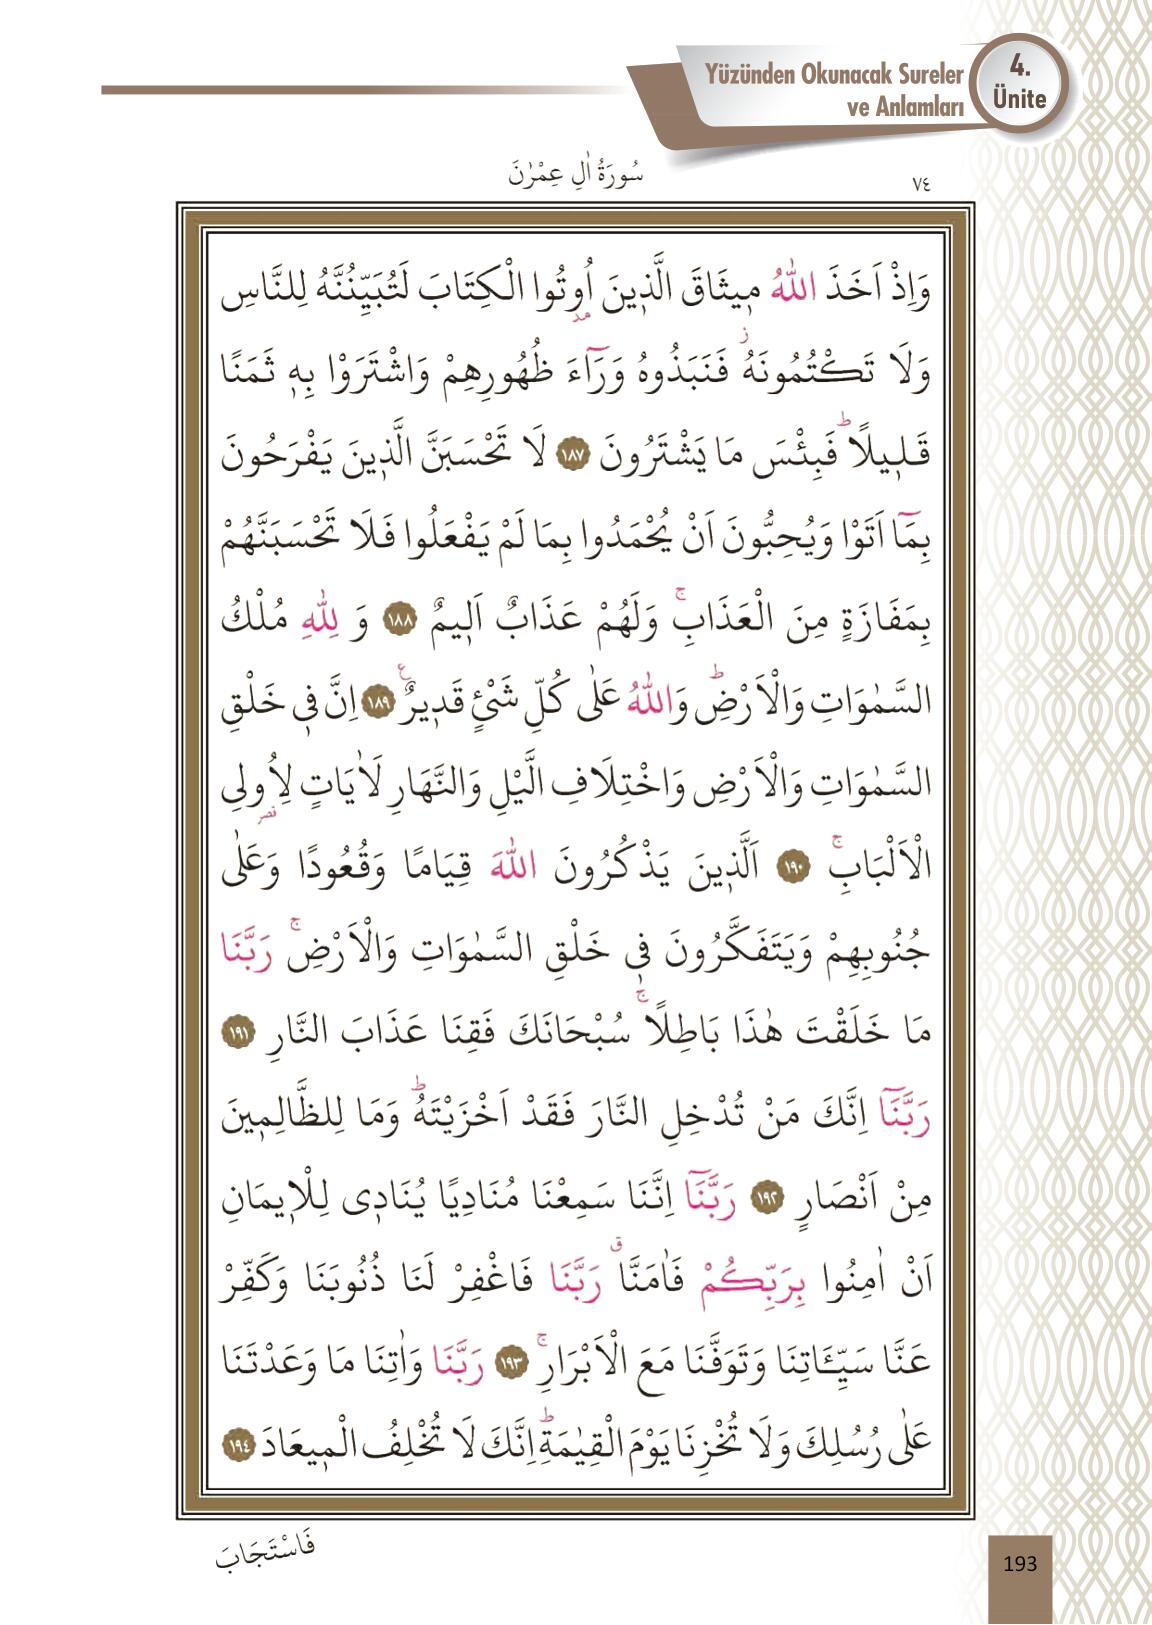 Yüzünden Okunacak Sureler
ve Anlamları
4.
Ünite
سُورَةُ اٰلِ عِمْرٰنَ
٧٤
وَاِذْ اَخَذَ اللّٰهُ م۪يثَاقَ الَّذ۪ينَ اُو۫تُوا الْكِتَابَ لَتُبَيِّنُنَّهُ لِلنَّاسِ
وَلَا تَكْتُمُونَهُۘ فَنَبَذُوهُ وَرَٓاءَ ظُهُورِهِمْ وَاشْتَرَوْا بِه۪ ثَمَنًا
قَل۪يلًاۜ فَبِئْسَ مَا يَشْتَرُونَ ﴿١٨٧﴾ لَا تَحْسَبَنَّ الَّذ۪ينَ يَفْرَحُونَ
بِمَٓا اَتَوْا وَيُحِبُّونَ اَنْ يُحْمَدُوا بِمَا لَمْ يَفْعَلُوا فَلَا تَحْسَبَنَّهُمْ
بِمَفَازَةٍ مِنَ الْعَذَابِۚ وَلَهُمْ عَذَابٌ اَل۪يمٌ ﴿١٨٨﴾ وَ لِلّٰهِ مُلْكُ
السَّمٰوَاتِ وَالْاَرْضِۜ وَاللّٰهُ عَلٰى كُلِّ شَيْءٍ قَد۪يرٌ۟ ﴿١٨٩﴾ اِنَّ ف۪ي خَلْقِ
السَّمٰوَاتِ وَالْاَرْضِ وَاخْتِلَافِ الَّيْلِ وَالنَّهَارِ لَاٰيَاتٍ لِاُو۬لِي
الْاَلْبَابِۚ ﴿١٩٠﴾ اَلَّذ۪ينَ يَذْكُرُونَ اللّٰهَ قِيَامًا وَقُعُودًا وَعَلٰى
جُنُوبِهِمْ وَيَتَفَكَّرُونَ ف۪ي خَلْقِ السَّمٰوَاتِ وَالْاَرْضِۚ رَبَّنَا
مَا خَلَقْتَ هٰذَا بَاطِلًاۚ سُبْحَانَكَ فَقِنَا عَذَابَ النَّارِ ﴿١٩١﴾
رَبَّنَٓا اِنَّكَ مَنْ تُدْخِلِ النَّارَ فَقَدْ اَخْزَيْتَهُۜ وَمَا لِلظَّالِم۪ينَ
مِنْ اَنْصَارٍ ﴿١٩٢﴾ رَبَّنَٓا اِنَّنَا سَمِعْنَا مُنَادِيًا يُنَاد۪ي لِلْا۪يمَانِ
اَنْ اٰمِنُوا بِرَبِّكُمْ فَاٰمَنَّاۗ رَبَّنَا فَاغْفِرْ لَنَا ذُنُوبَنَا وَكَفِّرْ
عَنَّا سَيِّـَٔاتِنَا وَتَوَفَّنَا مَعَ الْاَبْرَارِۚ ﴿١٩٣﴾ رَبَّنَا وَاٰتِنَا مَا وَعَدْتَنَا
عَلٰى رُسُلِكَ وَلَا تُخْزِنَا يَوْمَ الْقِيٰمَةِۜ اِنَّكَ لَا تُخْلِفُ الْم۪يعَادَ ﴿١٩٤﴾
فَاسْتَجَابَ
193